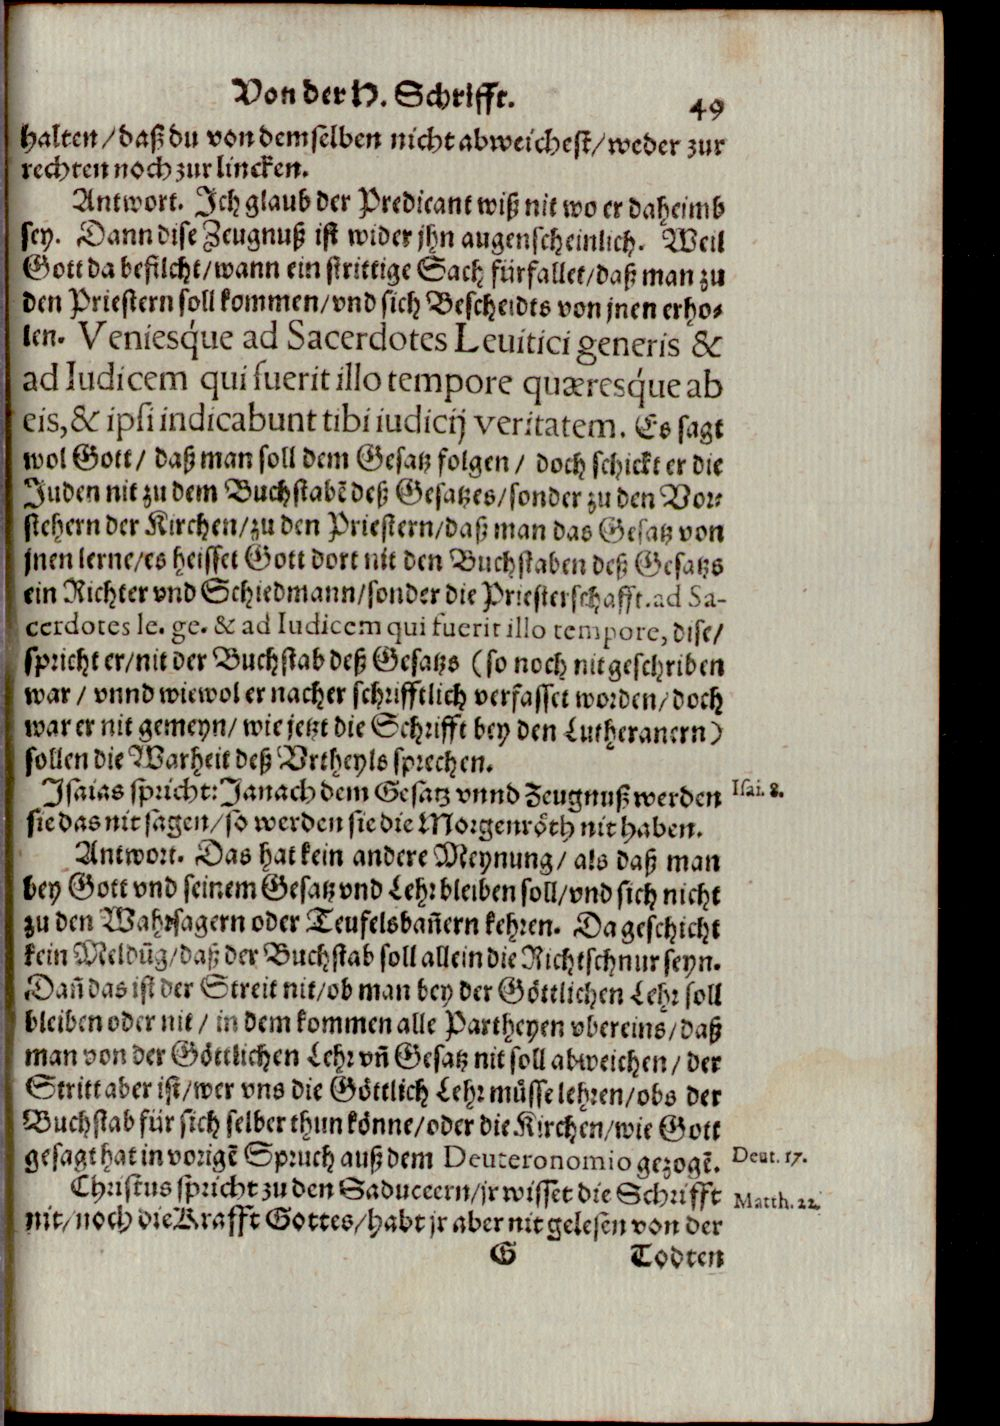 Von der H. Schrifft.
49
halten/daß du von demselben nicht abweichest/weder zur
rechten noch zur lincken.
Antwort. Ich glaub der Predicant wiß nit wo er daheimb
sey. Dann dise Zeugnuß ist wider jhn augenscheinlich. Weil
Gott da befilcht/wann ein strittige Sach fürfallet/daß man zu
den Priestern soll kommen/vnd sich Bescheidts von jnen erho-
len. Veniesq́ue ad Sacerdotes Leuitici generis &
ad Iudicem qui fuerit illo tempore quæresq́ue ab
eis,& ipsi indicabunt tibi iudicij veritatem. Es sagt
wol Gott/ daß man soll dem Gesatz folgen/ doch schickt er die
Juden nit zu dem Buchstabē deß Gesatzes/sonder zu den Vor-
stehern der Kirchen/zu den Priestern/daß man das Gesatz von
jnen lerne/es heisset Gott dort nit den Buchstaben deß Gesatzs
ein Richter vnd Schiedmann/sonder die Priesterschafft.ad Sa-
cerdotes le. ge. & ad Iudicem qui fuerit illo tempore, dise/
spricht er/nit der Buchstab deß Gesatzs (so noch nit geschriben
war/ vnnd wiewol er nacher schrifftlich verfasset worden/doch
war er nit gemeyn/ wie jetzt die Schrifft bey den Lutheranern)
sollen die Warheit deß Vrtheyls sprechen.
Isaias spricht: Ja nach dem Gesatz vnnd Zeugnuß werden
Isai. 8.
sie das nit sagen/so werden sie die Morgenröth nit haben.
Antwort. Das hat kein andere Meynung/ als daß man
bey Gott vnd seinem Gesatz vnd Lehr bleiben soll/vnd sich nicht
zu den Wahrsagern oder Teufelsbañern kehren. Da geschicht
kein Meldūg/daß der Buchstab soll allein die Richtschnur seyn.
Dañ das ist der Streit nit/ob man bey der Göttlichen Lehr soll
bleiben oder nit/ in dem kommen alle Partheyen vbereins/daß
man von der Göttlichen Lehr vñ Gesatz nit soll abweichen/ der
Stritt aber ist/wer vns die Göttlich Lehr müsse lehren/obs der
Buchstab für sich selber thun könne/oder die Kirchen/wie Gott
gesagt hat in vorigē Spruch auß dem Deuteronomio gezogē.
Deut. 17.
Christus spricht zu den Saduceern/jr wisset die Schrifft
Matth. 22.
nit/noch die Krafft Gottes/habt jr aber nit gelesen von der
G
Todten